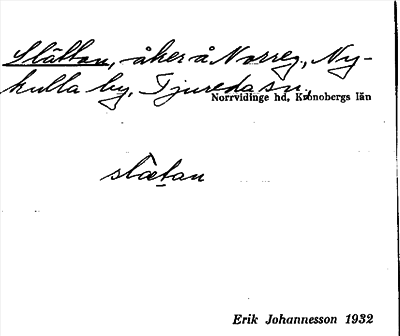 Slättan, åker å Norreg., Ny-
kulla by, Tjureda sn.,
Norrvidinge hd, Kronobergs län
slætan
Erik Johannesson 1932